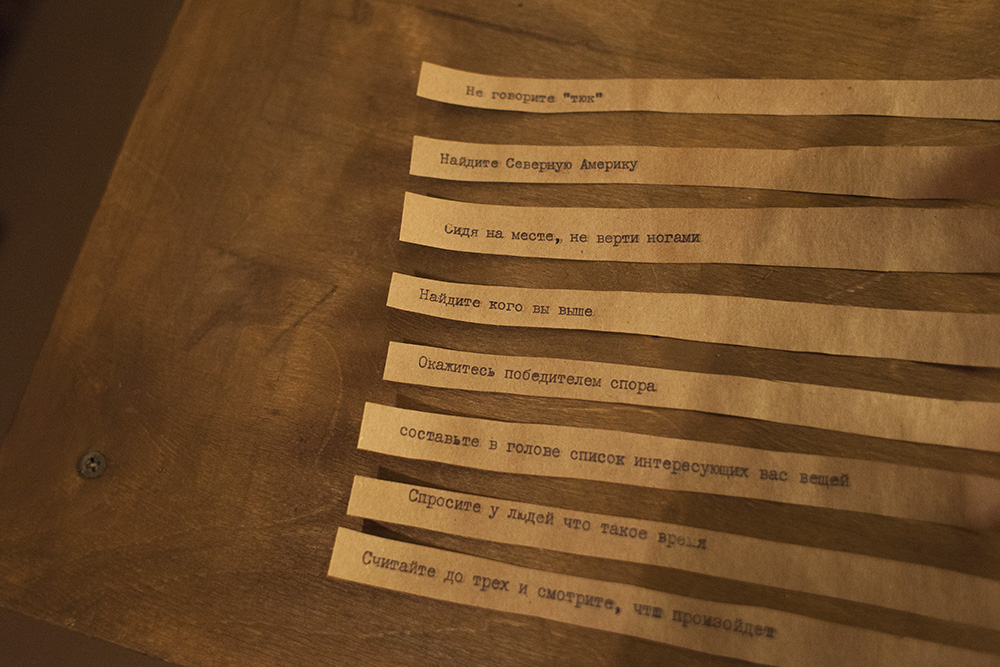 Не говорите "тюк"
Найдите Северную Америку
Сидя на месте, не верти ногами
Найдите кого вы выше
Окажитесь победителем спора
составьте в голове список интересующих вас вещей
Спросите у людей что такое время
Считайте до трех и смотрите, чтш произойдет